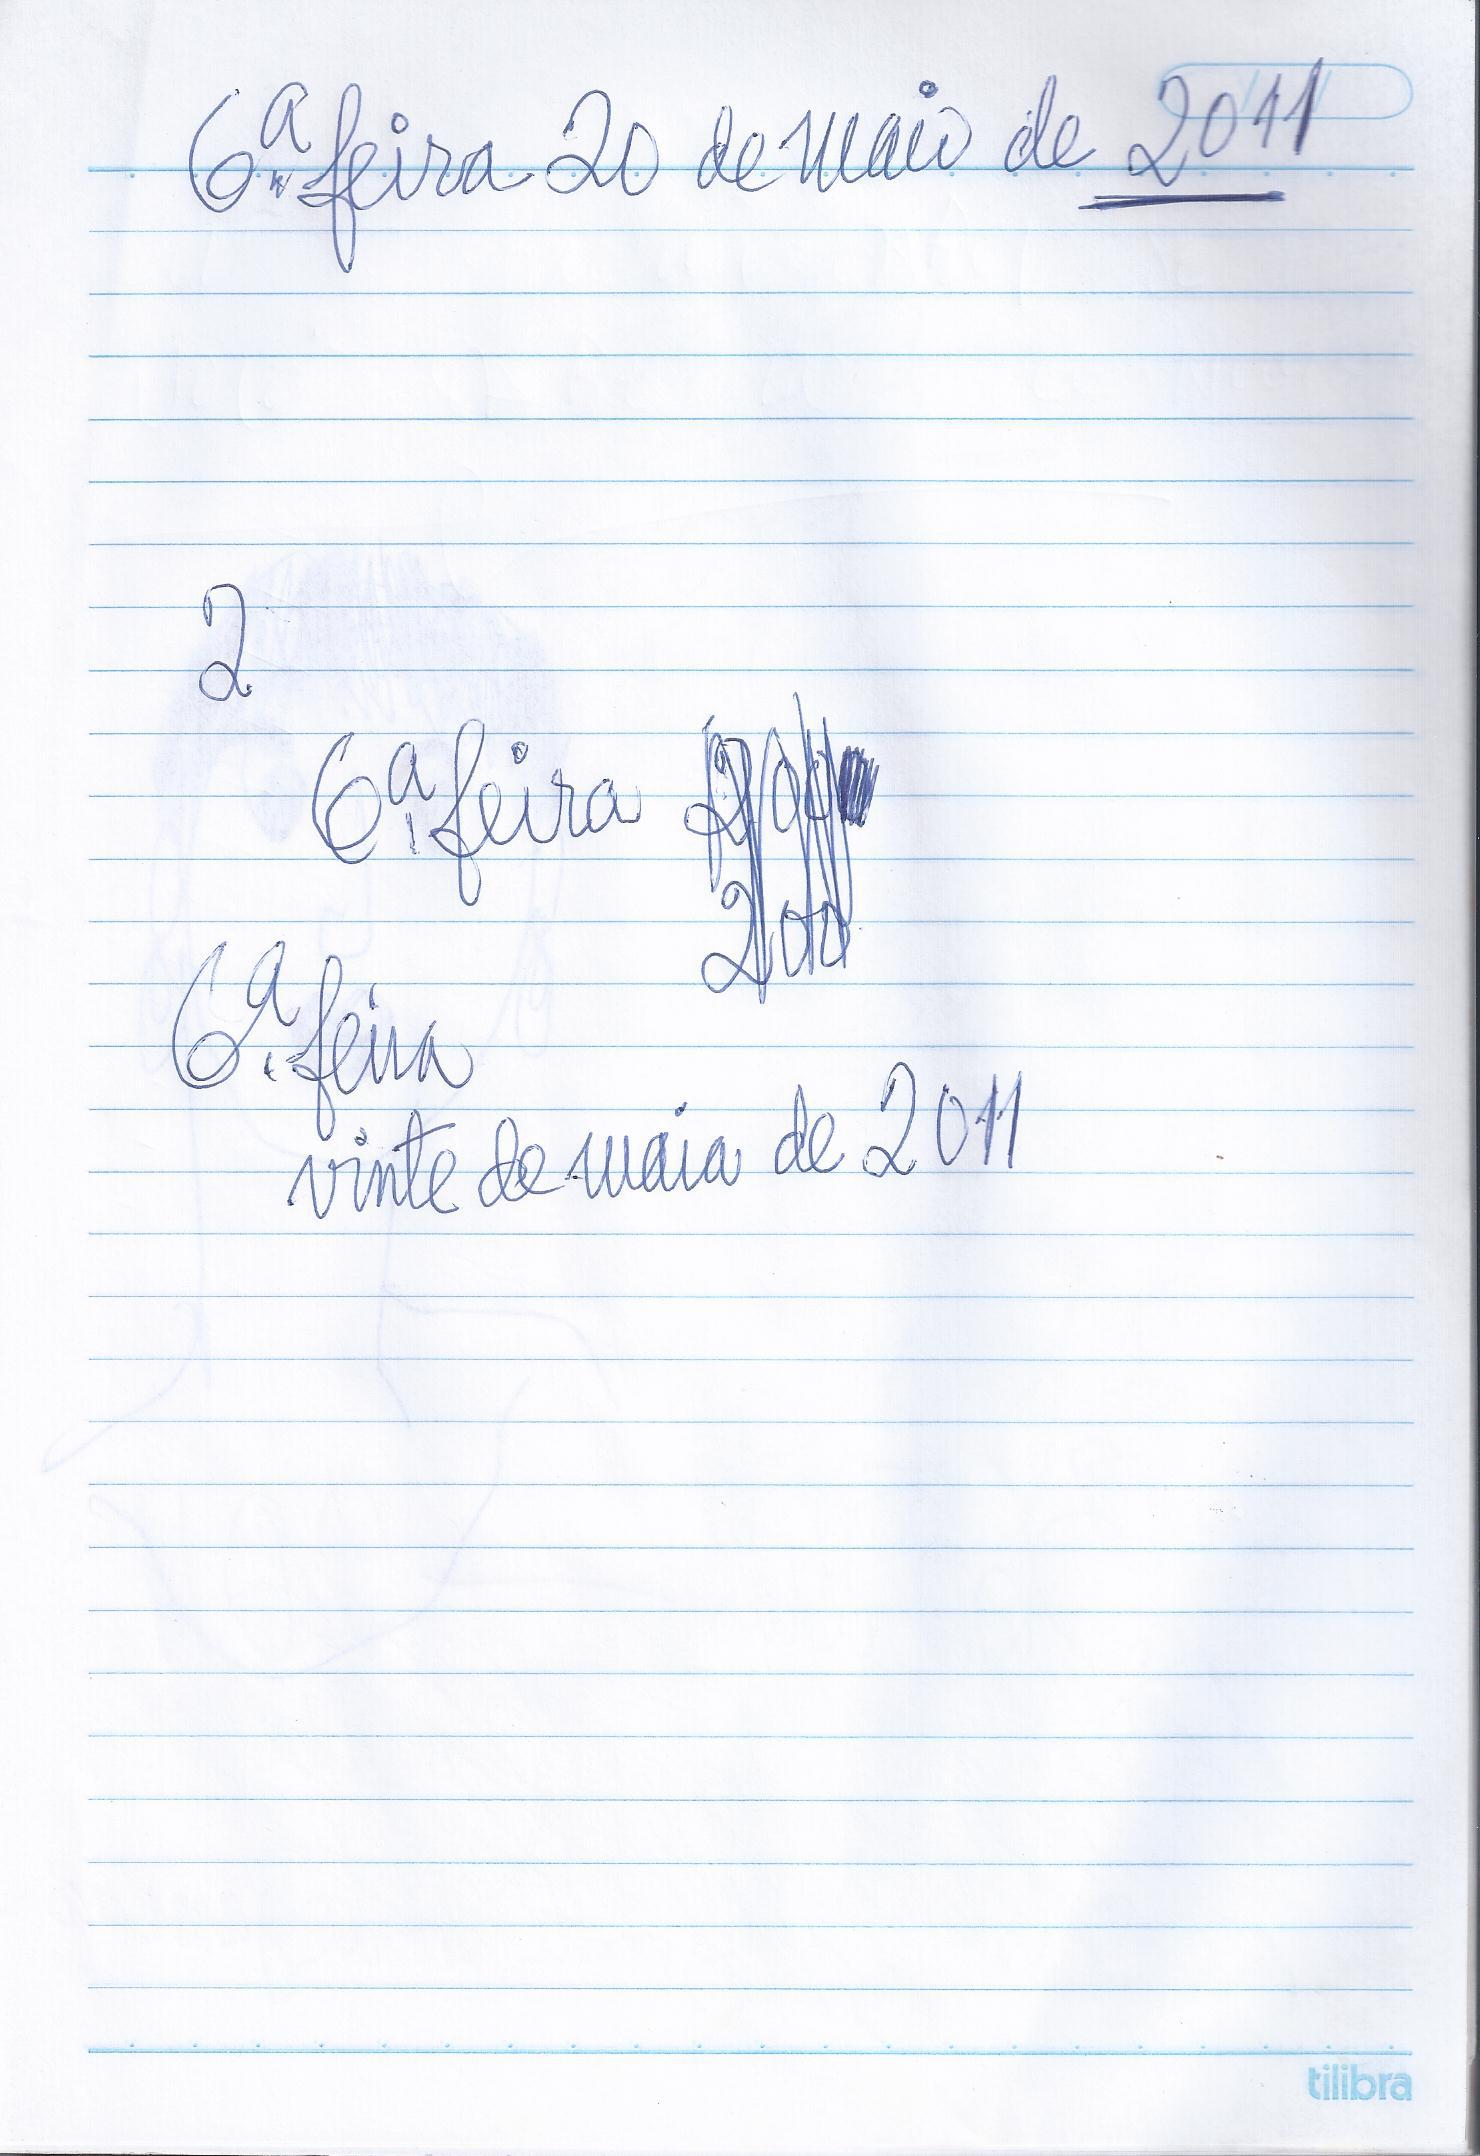 6ª feira 20 de maio de 2011
2
6ª feira
6ª feira
vinte de maia de 2011
tilibra